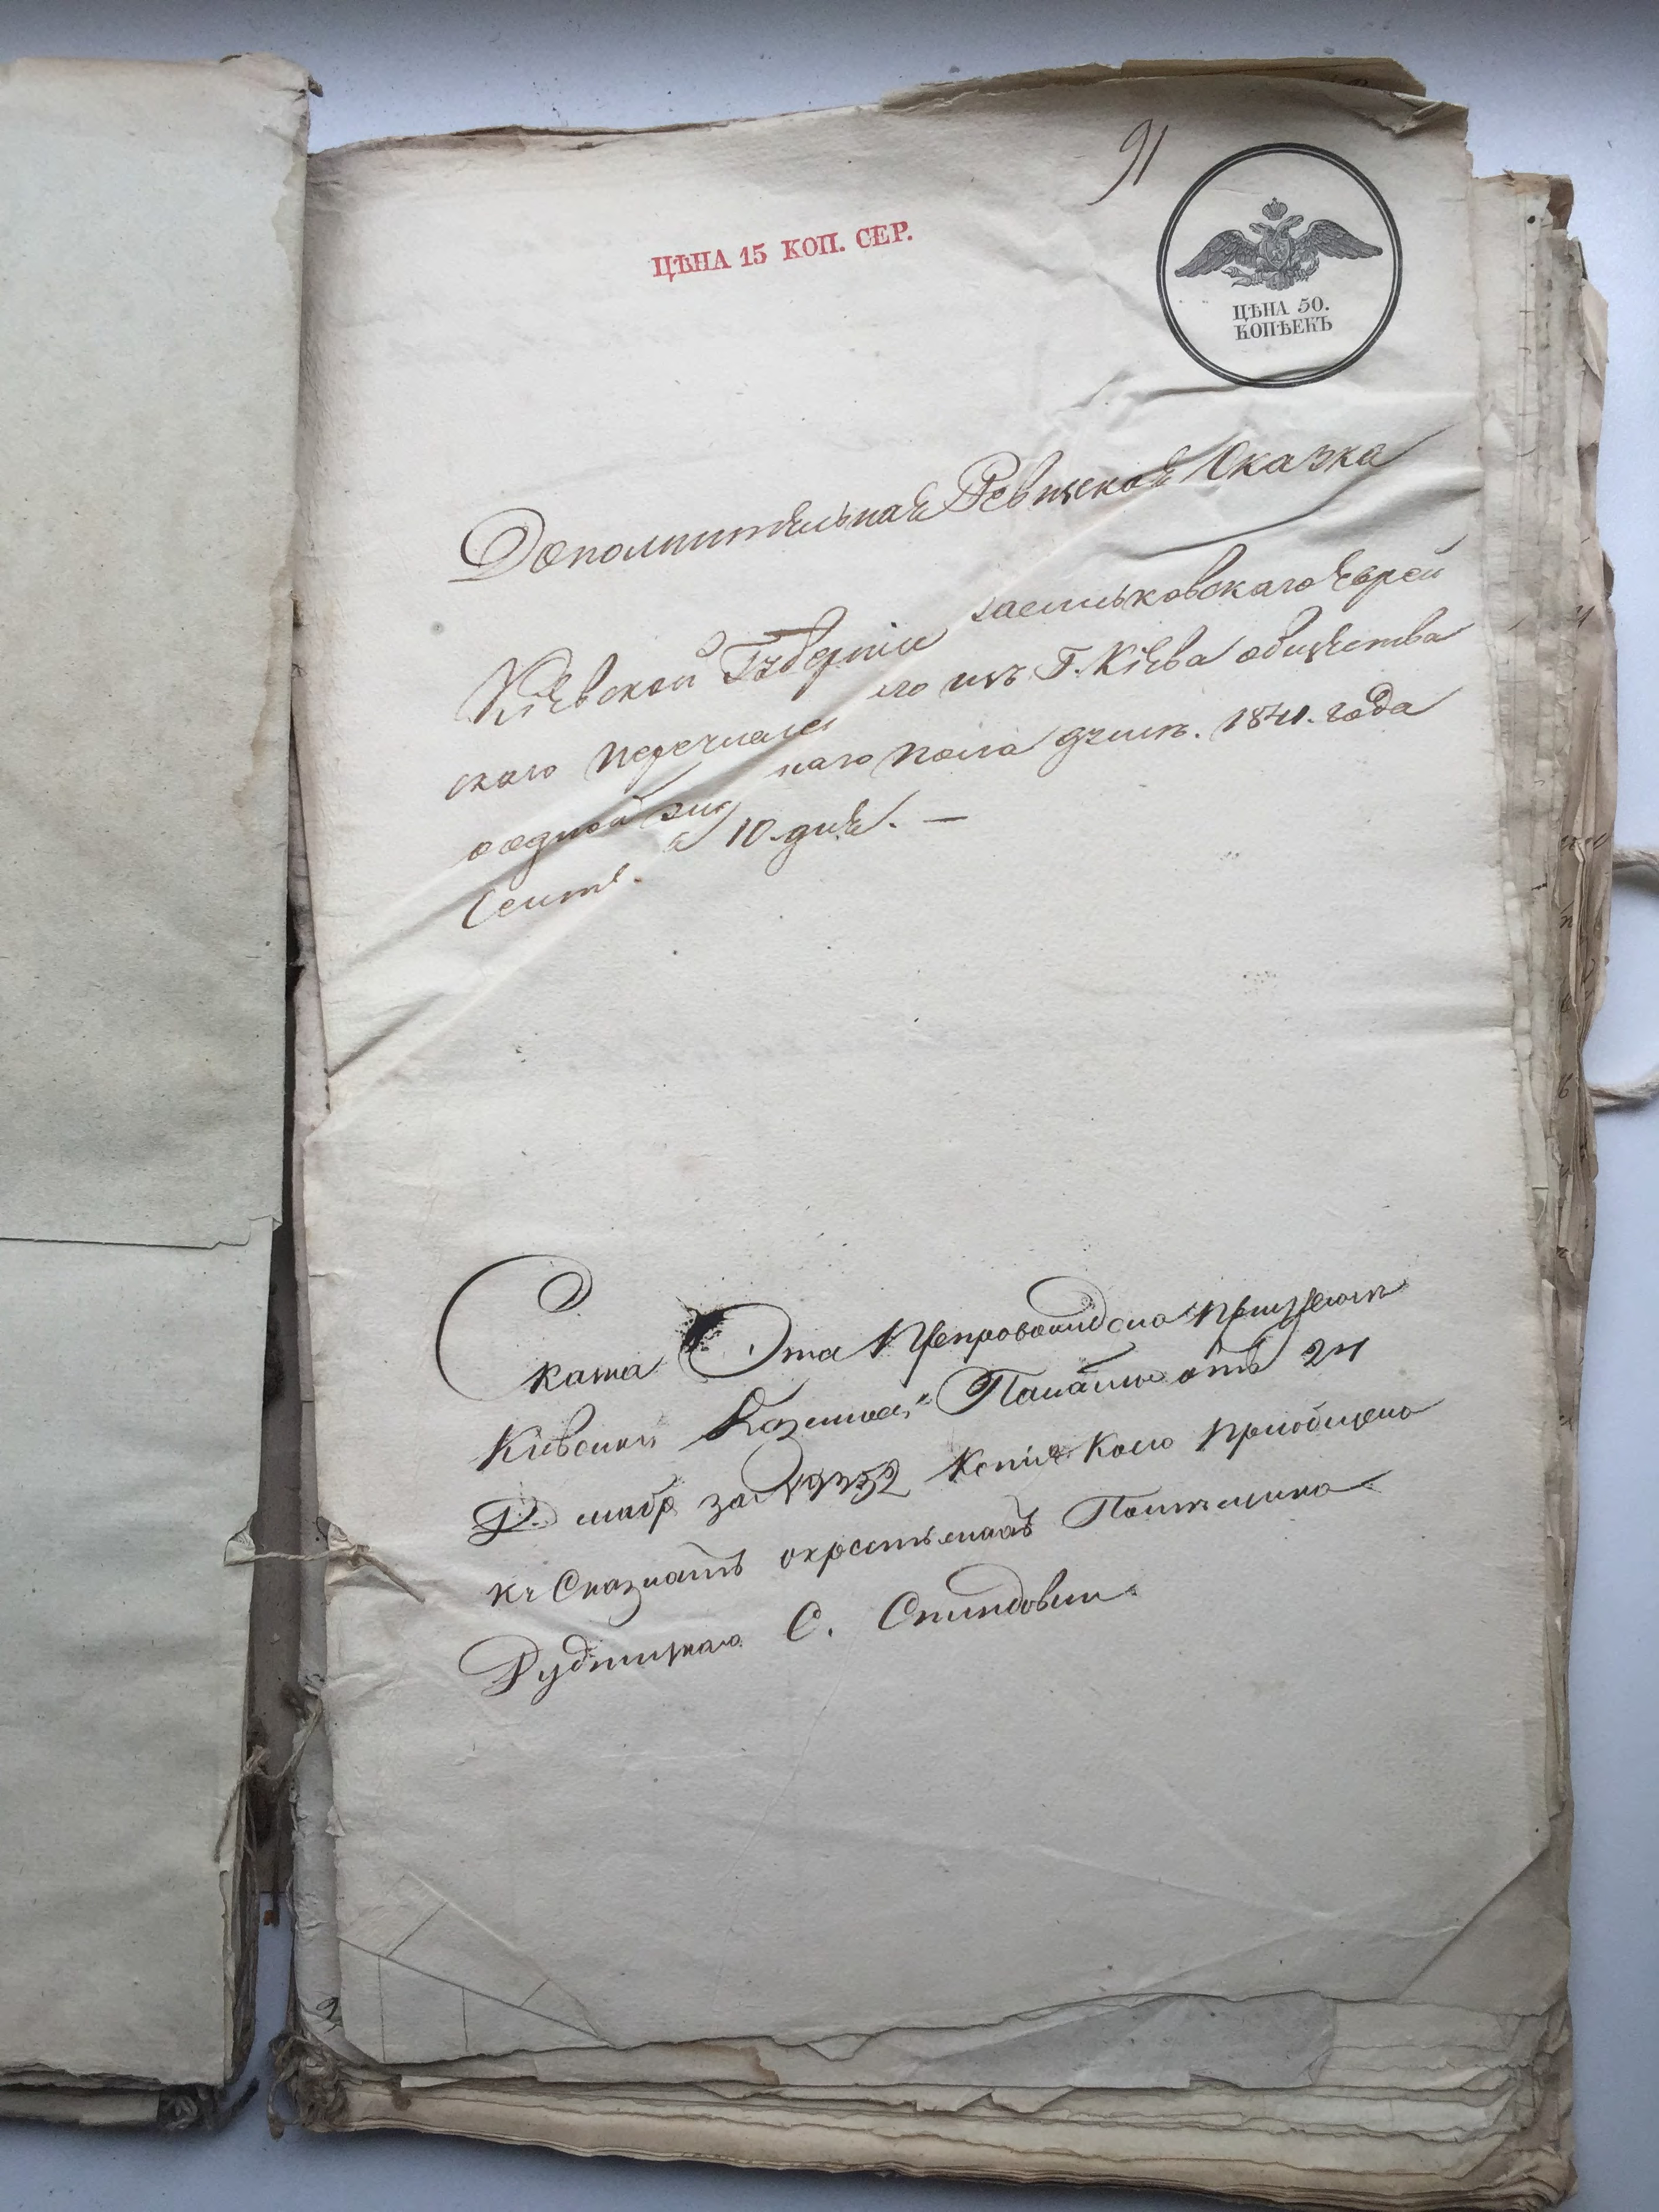 91
ЦѢНА 15 КОП. СЕР.
ЦѢНА 50.
КОПѢЕКЪ
Дополнительная Ревизская Сказка
Кіевской Губерніи Васильковскаго Еврей
скаго перечислен его изъ Г. Кіева общества
о одной жид наго пола душѣ. 1841. года
Сентя. 10. дня. —
Сказка Эта Препровождена при указѣ
Кіевской Казенной Палаты отъ 24
Декабр за № Копія Коего приобщена
Къ Сказкамъ о крестьянахъ Помѣщика
Рудницкаго С.